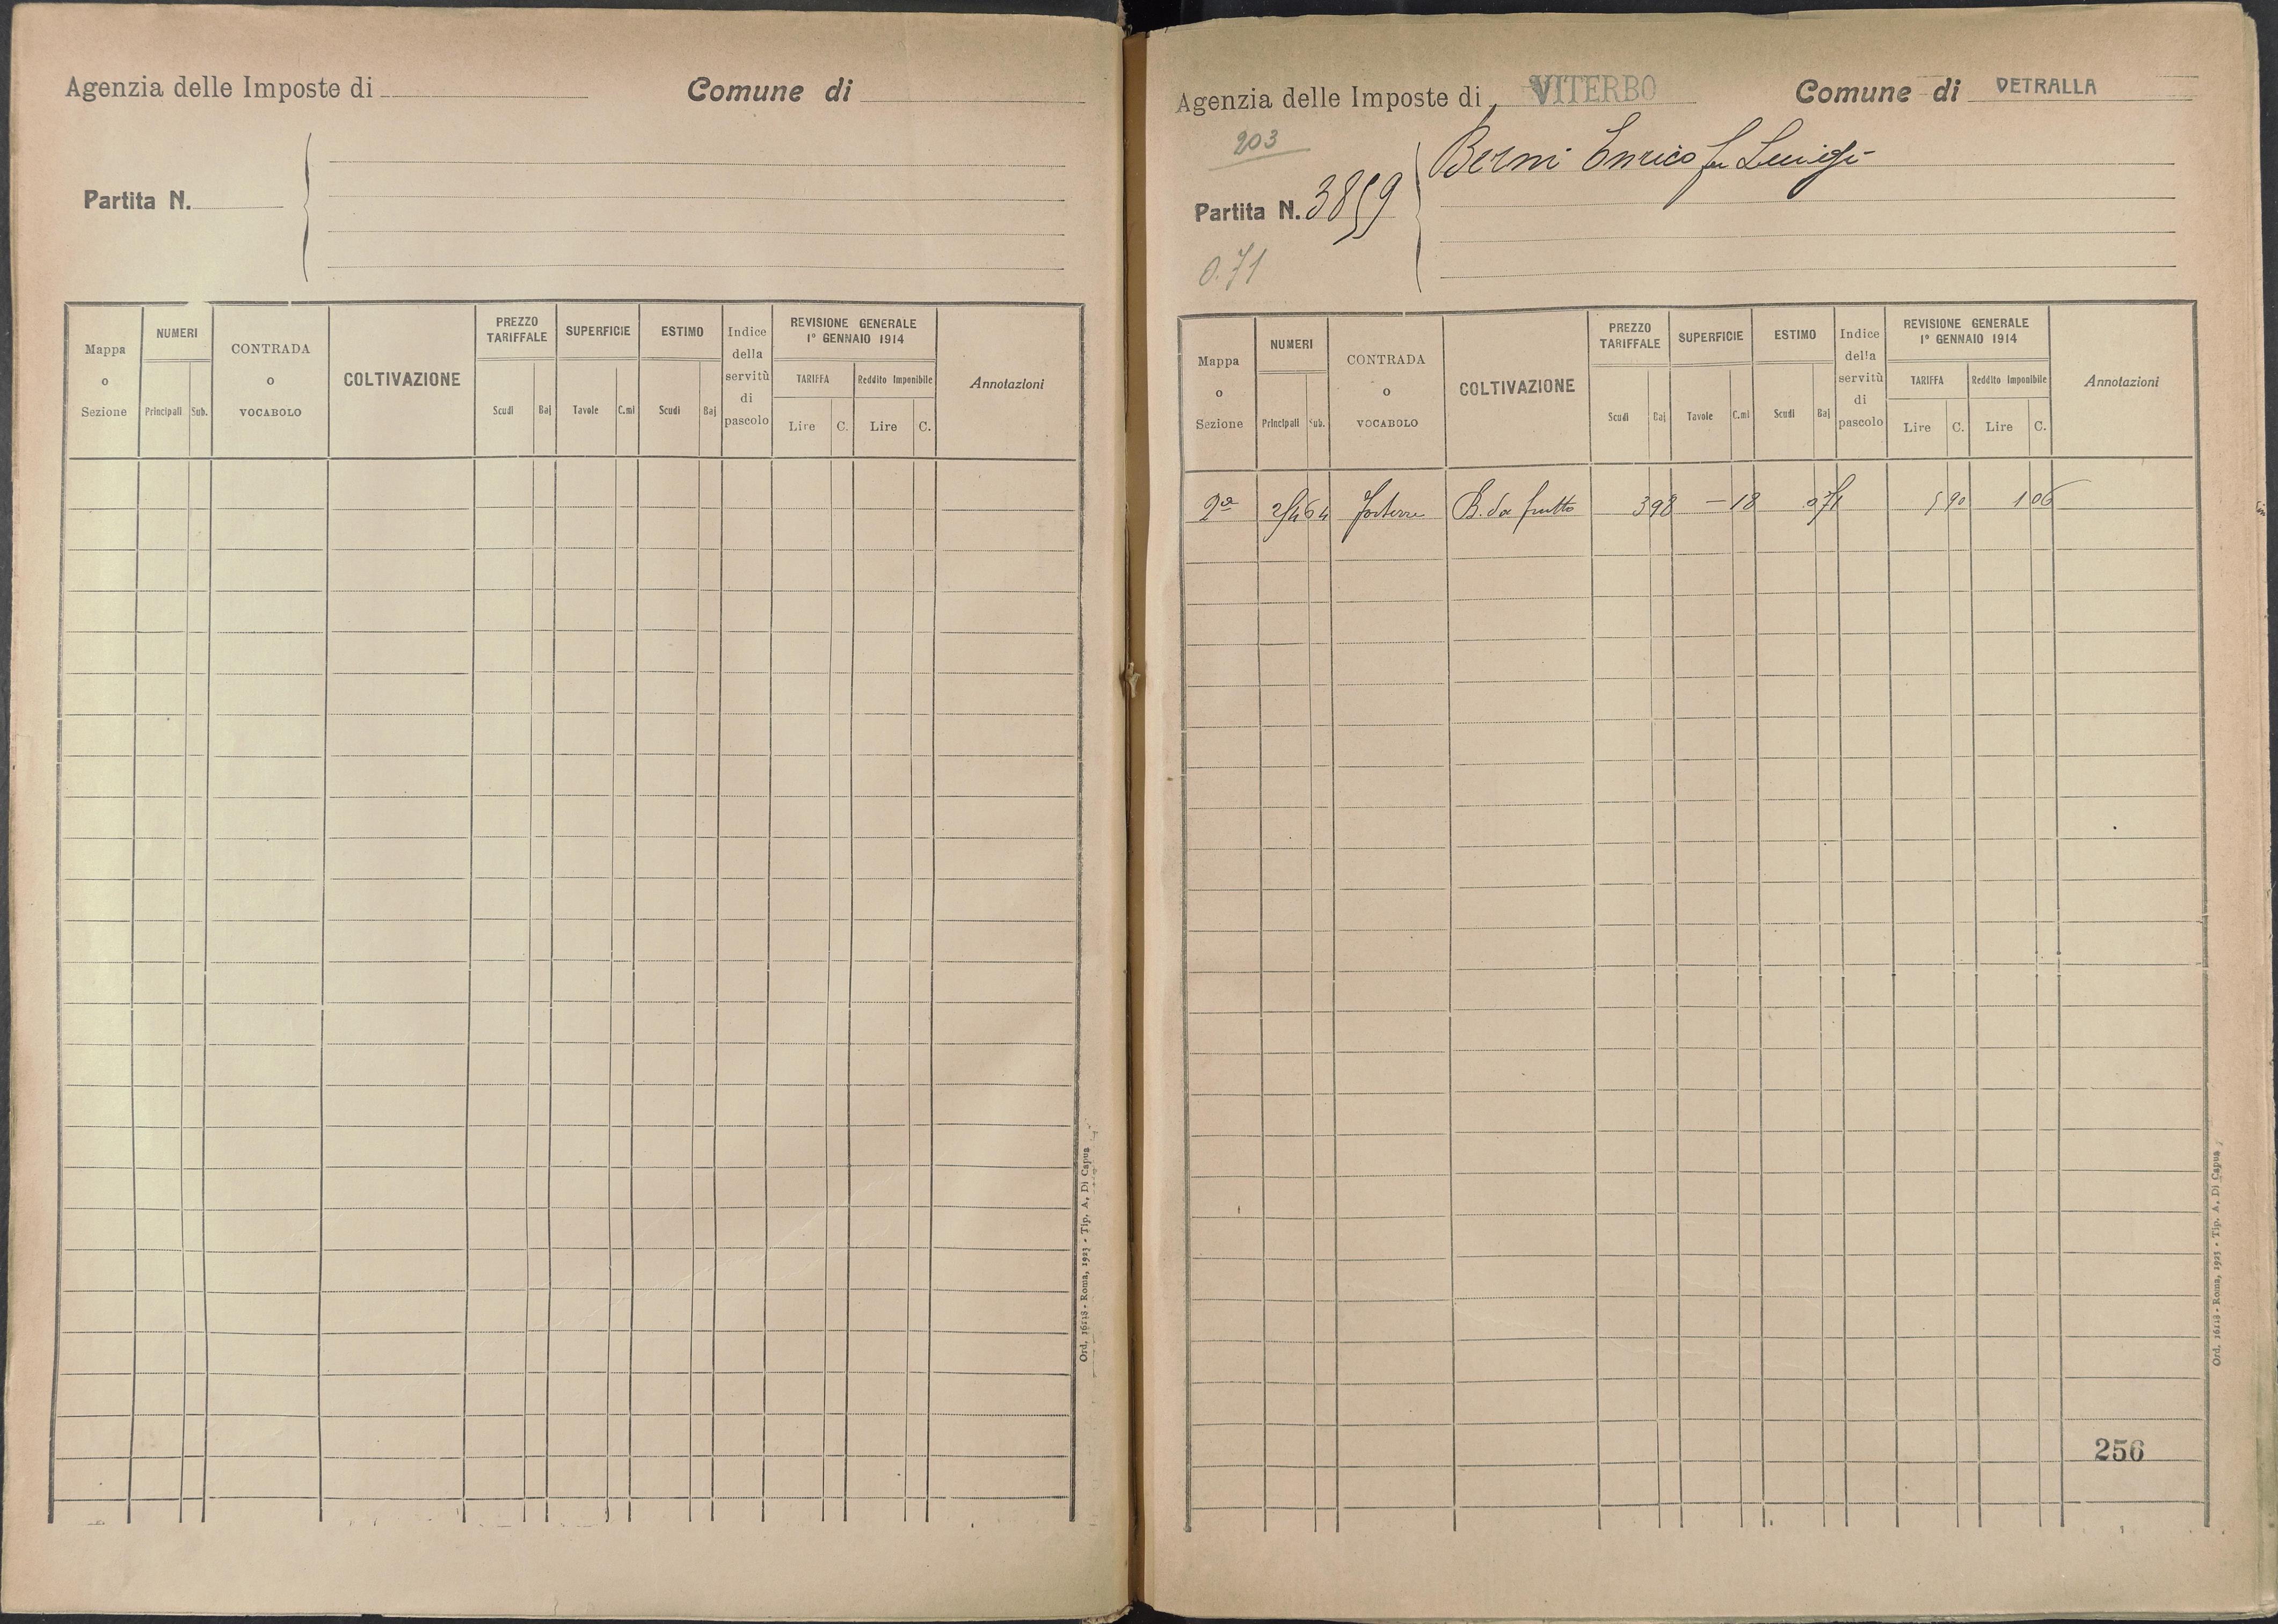 Agenzia delle Imposte di
Comune di
Partita N.
Mappa o Sezione
NUMERI
Principali Sub.
CONTRADA o VOCABOLO
COLTIVAZIONE
PREZZO TARIFFALE
Scudi Baj
SUPERFICIE
Tavole C.mi
ESTIMO
Scudi Baj
Indice della servitù di pascolo
REVISIONE GENERALE
1° GENNAIO 1914
TARIFFA
Lire C.
Reddito Imponibile
Lire C.
Annotazioni
Ord. 16118 - Roma, 1923 - Tip. A. Di Capua
Agenzia delle Imposte di VITERBO
Comune di VETRALLA
203
Berni Enrico fu Luigi
Partita N. 3859
0.71
Mappa o Sezione
NUMERI
Principali Sub.
CONTRADA o VOCABOLO
COLTIVAZIONE
PREZZO TARIFFALE
Scudi Baj
SUPERFICIE
Tavole C.mi
ESTIMO
Scudi Baj
Indice della servitù di pascolo
REVISIONE GENERALE
1° GENNAIO 1914
TARIFFA
Lire C.
Reddito Imponibile
Lire C.
Annotazioni
2a B. da frutto 398 – 18 5 90 1 06
256
Ord. 16118 - Roma, 1923 - Tip. A. Di Capua